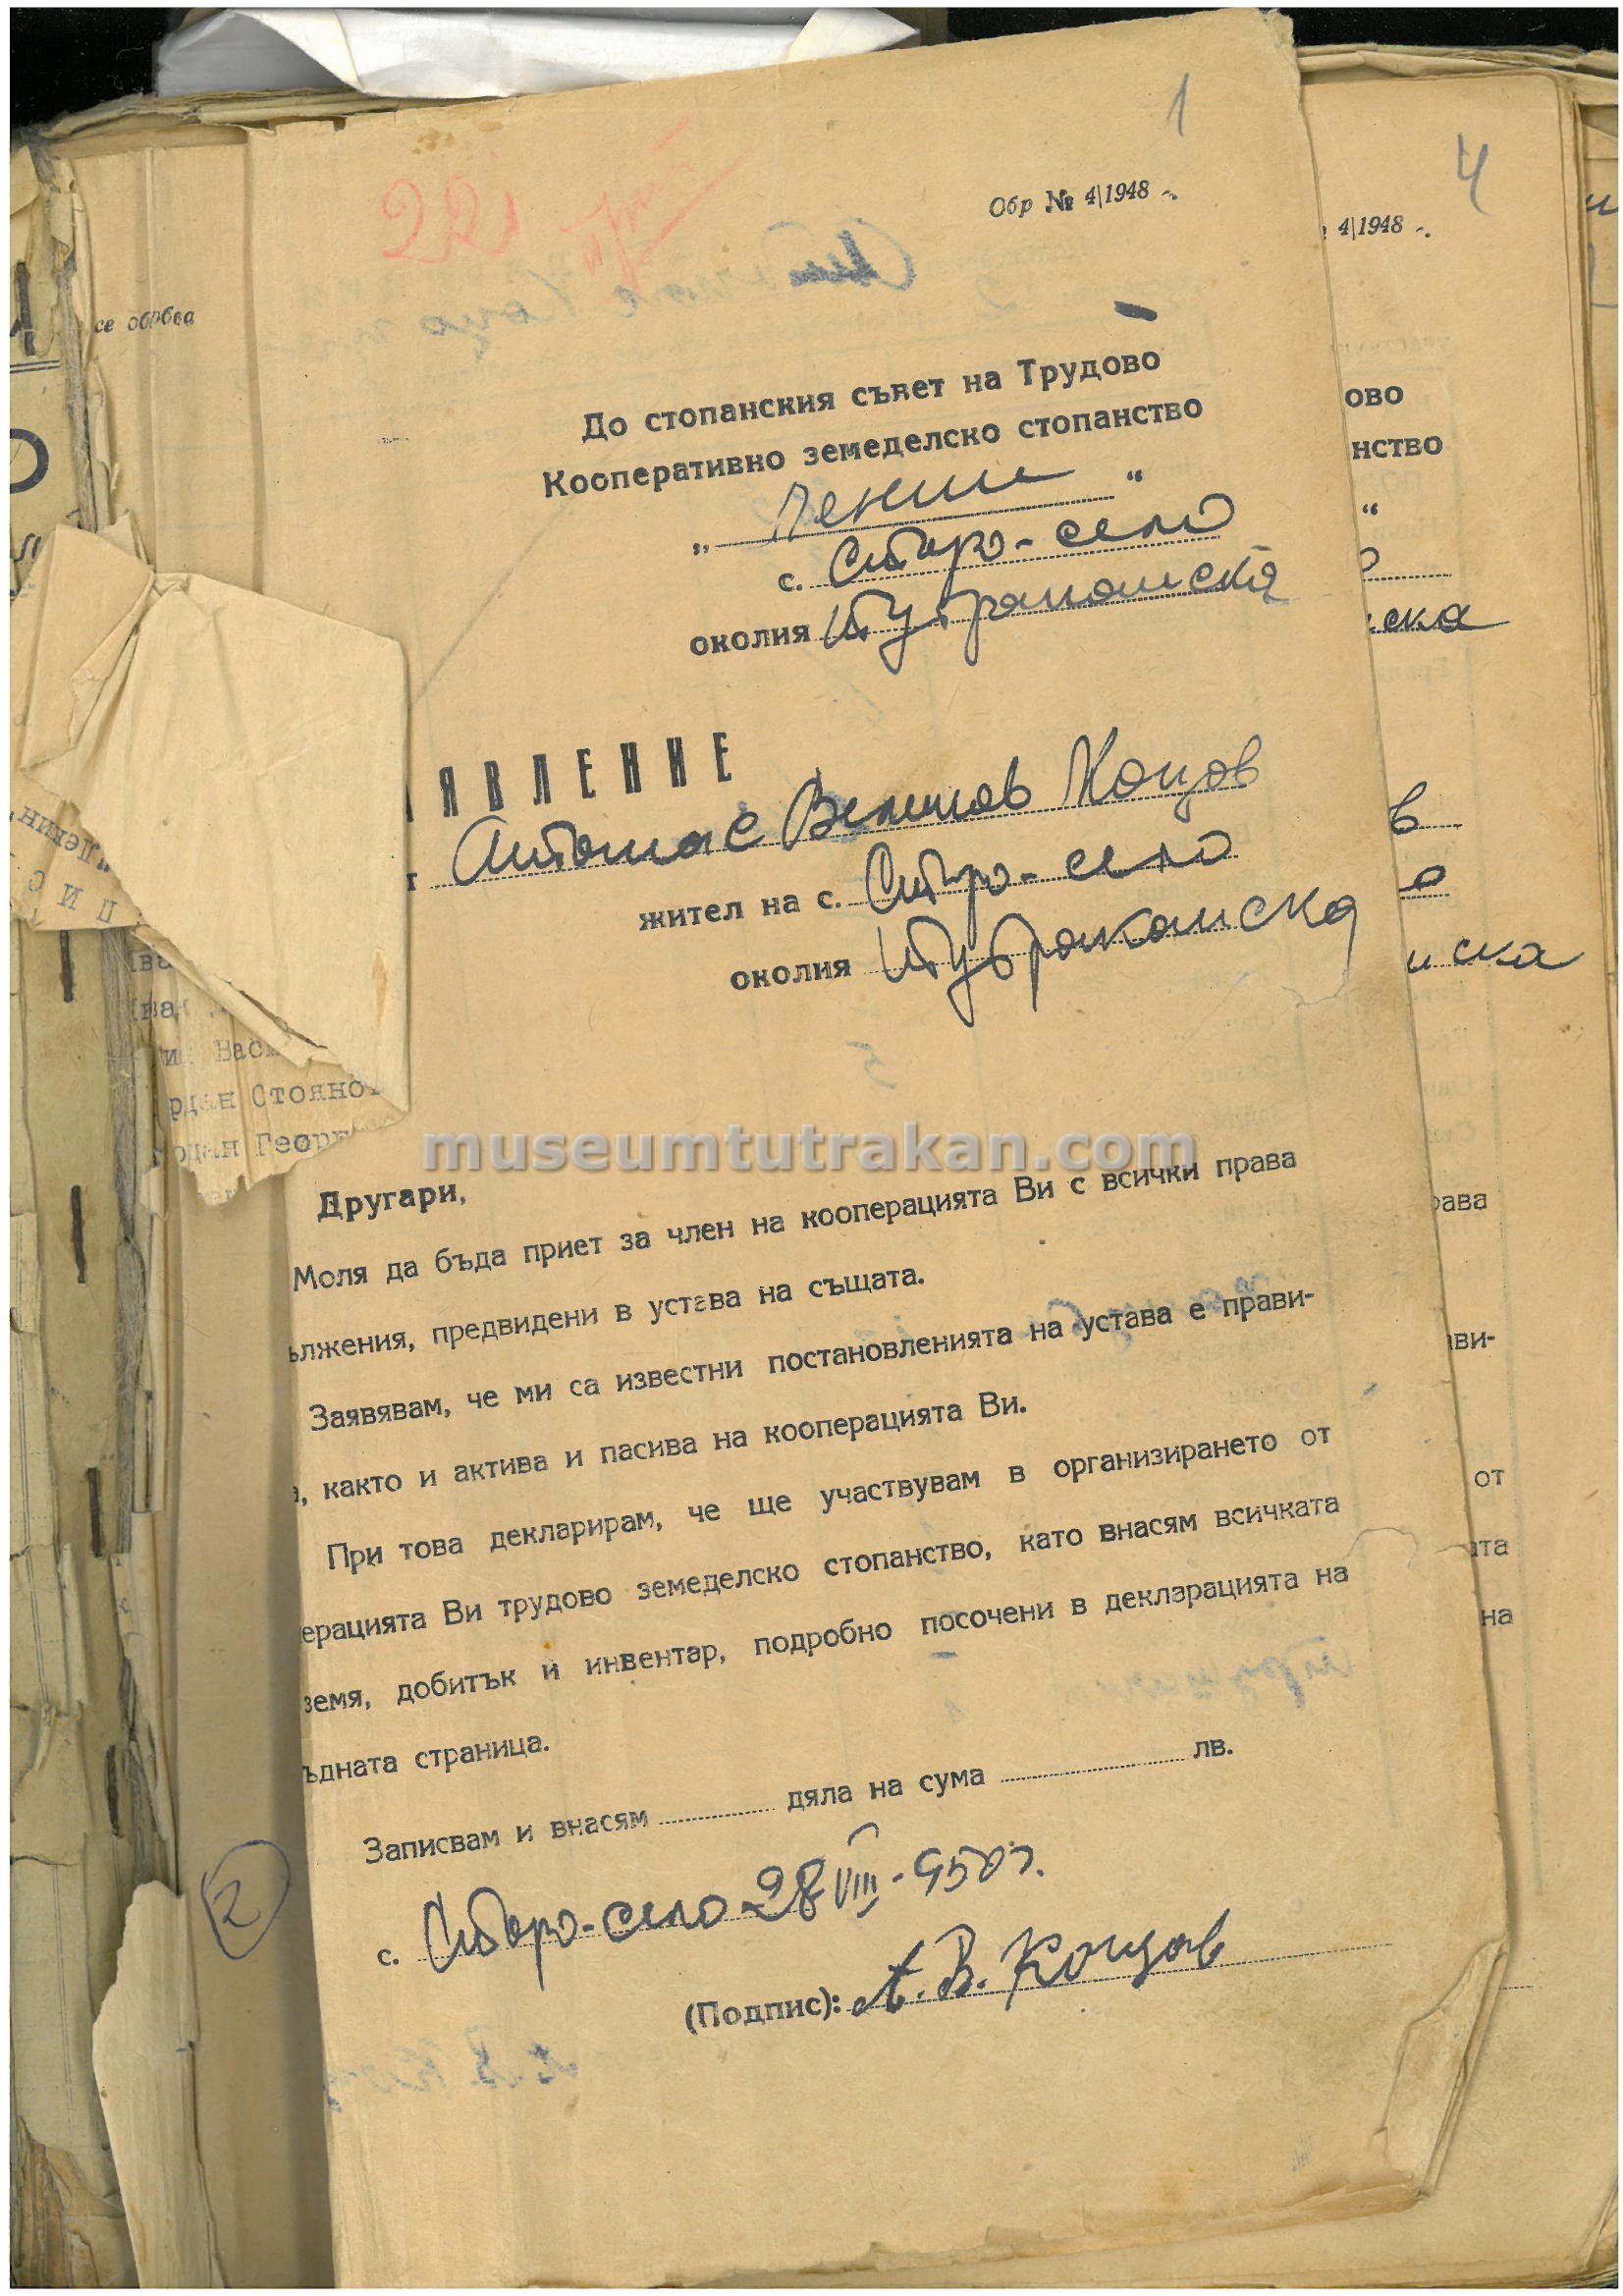 1
4
221
Обр № 4|1948 -.
4|1948 -.
се обрбва
До стопанския съвет на Трудово
Кооперативно земеделско стопанство
„ Ленин “
с. Старо-село
околия Тутраканска
ово
нство
“
о
ска
ЯВЛЕНИЕ
т Антонас Великов Коцов
жител на с. Старо-село
околия Тутраканска
в
о
ска
„Ленин“
Вас
рдан Стоянов
рдан Георг
museumtutrakan.com
Другари,
Моля да бъда приет за член на кооперацията Ви с всички права
ължения, предвидени в устава на същата.
Заявявам, че ми са известни постановленията на устава е прави-
а, както и актива и пасива на кооперацията Ви.
При това декларирам, че ще участвувам в организирането от
ерацията Ви трудово земеделско стопанство, като внасям всичката
земя, добитък и инвентар, подробно посочени в декларацията на
ъдната страница.
Записвам и внасям ............ дяла на сума ............ лв.
рава
ави-
от
ата
на
2
с. Старо-село 28 VIII - 950 г.
(Подпис): А. В. Коцов